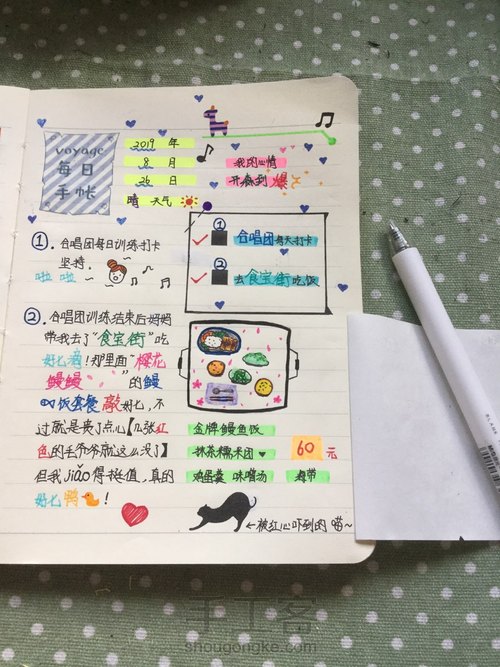 voyage
每日
手帐
2019 年
8 月
26 日
晴 天气
我的心情
开森到 爆
①. 合唱团每日训练打卡
坚持.
啦 啦
①
合唱团每天打卡
②
去食宝街吃饭
②. 合唱团训练结束后妈妈
带我去了“食宝街”吃
好吃滴!那里面“樱花
鳗鳗”的鳗
饭套餐 敲好吃,不
过就是贵了点儿【几张红
色的毛爷爷就这么没了】
但我jiǎo得挺值,真的
好吃鸭!
金牌鳗鱼饭
抹茶糯米团
鸡蛋羹 味噌汤
海带
60元
←被红心吓到的 喵~
手工客
shougongke.com